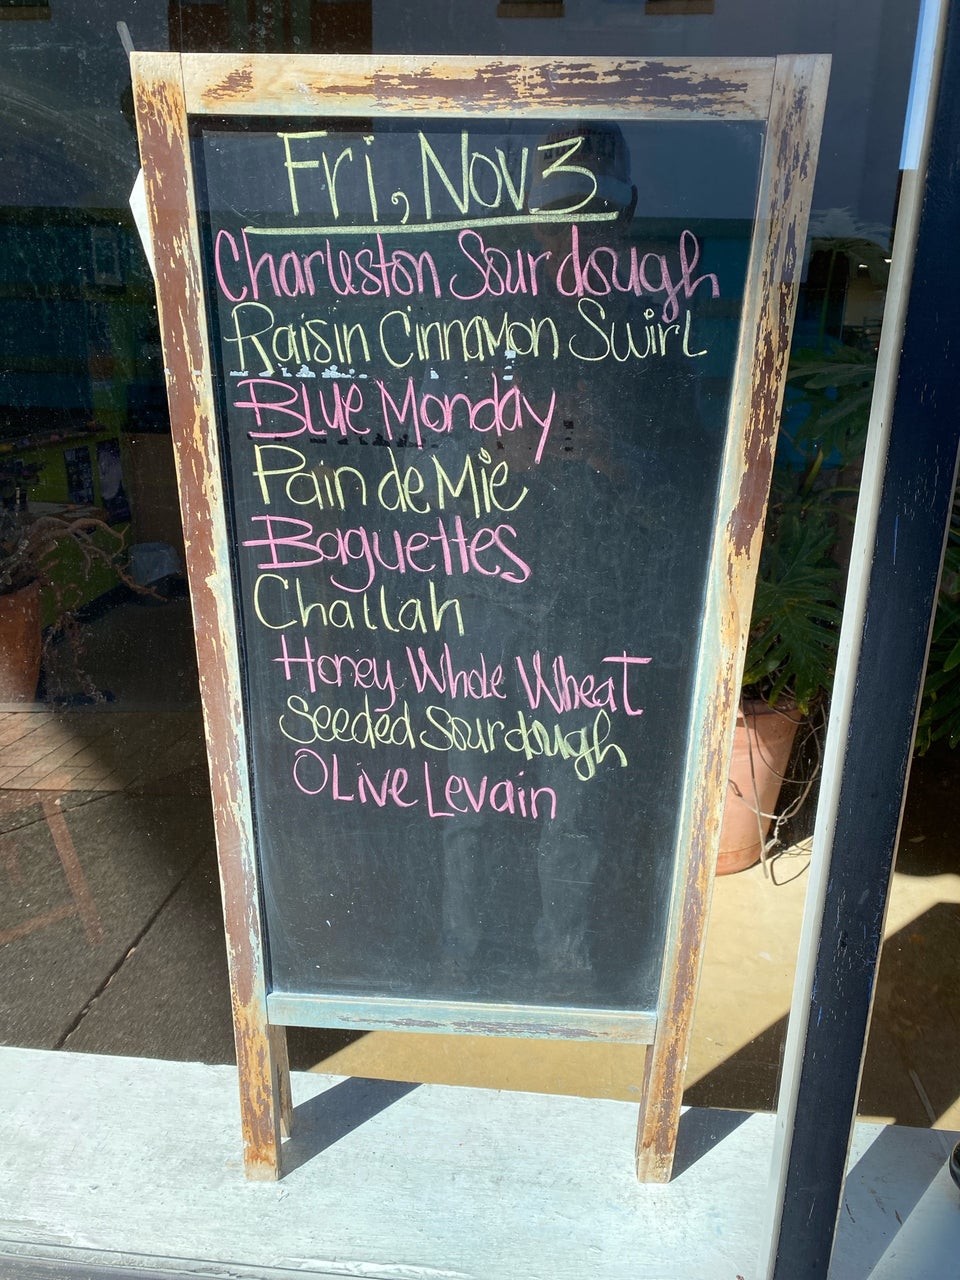 Fri, Nov 3
Charleston Sourdough
Raisin Cinnamon Swirl
Blue Monday
Pain de Mie
Baguettes
Challah
Honey Whole Wheat
Seeded Sourdough
Olive Levain